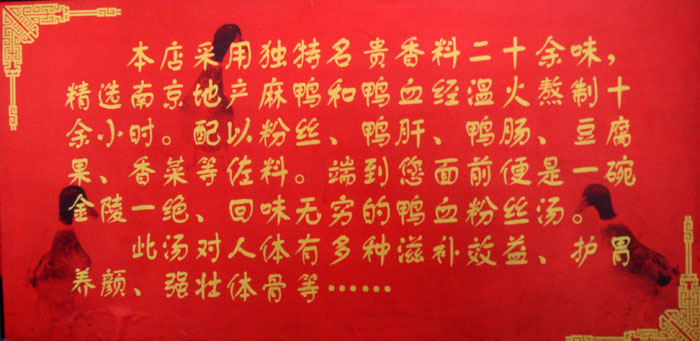 本店采用独特名贵香料二十余味，
精选南京地产麻鸭和鸭血经温火熬制十
余小时。配以粉丝、鸭肝、鸭肠、豆腐
果、香菜等佐料。端到您面前便是一碗
金陵一绝、回味无穷的鸭血粉丝汤。
此汤对人体有多种滋补效益、护胃
养颜、强壮体骨等……